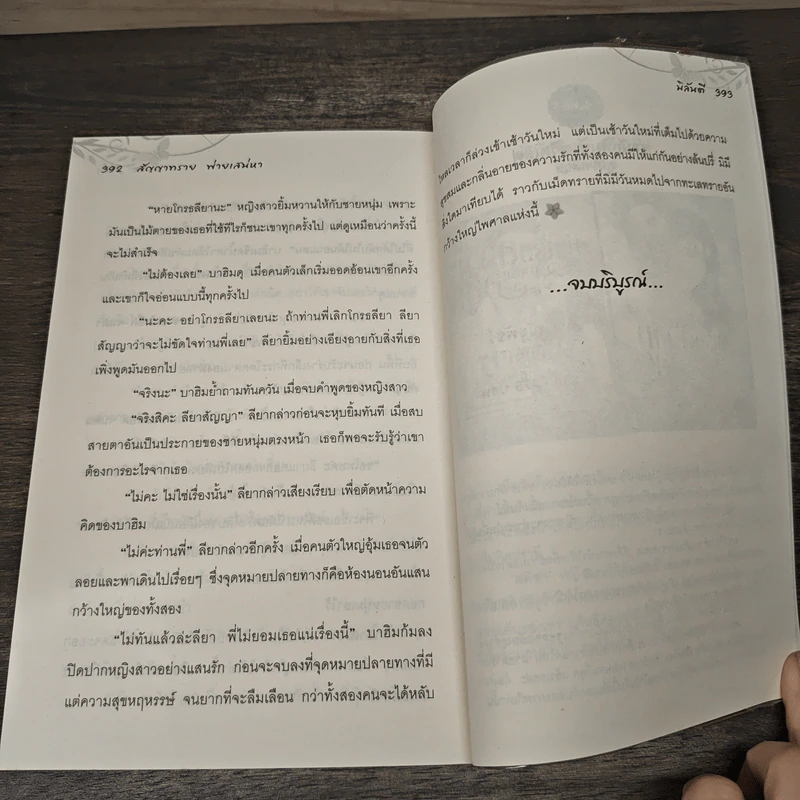 392 สัญญาทราย พ่ายเสน่หา
“หายโกรธลียานะ” หญิงสาวยิ้มหวานให้กับชายหนุ่ม เพราะ
มันเป็นไม้ตายของเธอที่ใช้ทีไรก็ชนะเขาทุกครั้งไป แต่ดูเหมือนว่าครั้งนี้
จะไม่สำเร็จ
“ไม่ต้องเลย” บาฮิมดุ เมื่อคนตัวเล็กเริ่มออดอ้อนเขาอีกครั้ง
และเขาก็ใจอ่อนแบบนี้ทุกครั้งไป
“นะคะ อย่าโกรธลียาเลยนะ ถ้าท่านพี่เลิกโกรธลียา ลียา
สัญญาว่าจะไม่ขัดใจท่านพี่เลย” ลียายิ้มอย่างเอียงอายกับสิ่งที่เธอ
เพิ่งพูดมันออกไป
“จริงนะ” บาฮิมย้ำถามทันควัน เมื่อจบคำพูดของหญิงสาว
“จริงสิคะ ลียาสัญญา” ลียากล่าวก่อนจะหุบยิ้มทันที เมื่อสบ
สายตาอันเป็นประกายของชายหนุ่มตรงหน้า เธอก็พอจะรับรู้ว่าเขา
ต้องการอะไรจากเธอ
“ไม่คะ ไม่ใช่เรื่องนั้น” ลียากล่าวเสียงเรียบ เพื่อตัดหน้าความ
คิดของบาฮิม
“ไม่ค่ะท่านพี่” ลียากล่าวอีกครั้ง เมื่อคนตัวใหญ่อุ้มเธอจนตัว
ลอยและพาเดินไปเรื่อยๆ ซึ่งจุดหมายปลายทางก็คือห้องนอนอันแสน
กว้างใหญ่ของทั้งสอง
“ไม่ทันแล้วล่ะลียา พี่ไม่ยอมเธอแน่เรื่องนี้” บาฮิมก้มลง
ปิดปากหญิงสาวอย่างแสนรัก ก่อนจะจบลงที่จุดหมายปลายทางที่มี
แต่ความสุขหฤหรรษ์ จนยากที่จะลืมเลือน กว่าทั้งสองคนจะได้หลับ
มิลันตี 393
เวลาก็ล่วงเข้าเช้าวันใหม่ แต่เป็นเช้าวันใหม่ที่เต็มไปด้วยความ
สุขสมและกลิ่นอายของความรักที่ทั้งสองคนมีให้แก่กันอย่างล้นปรี่ มิมี
สิ่งใดมาเทียบได้ ราวกับเม็ดทรายที่มิมีวันหมดไปจากทะเลทรายอัน
กว้างใหญ่ไพศาลแห่งนี้
...จบบริบูรณ์...